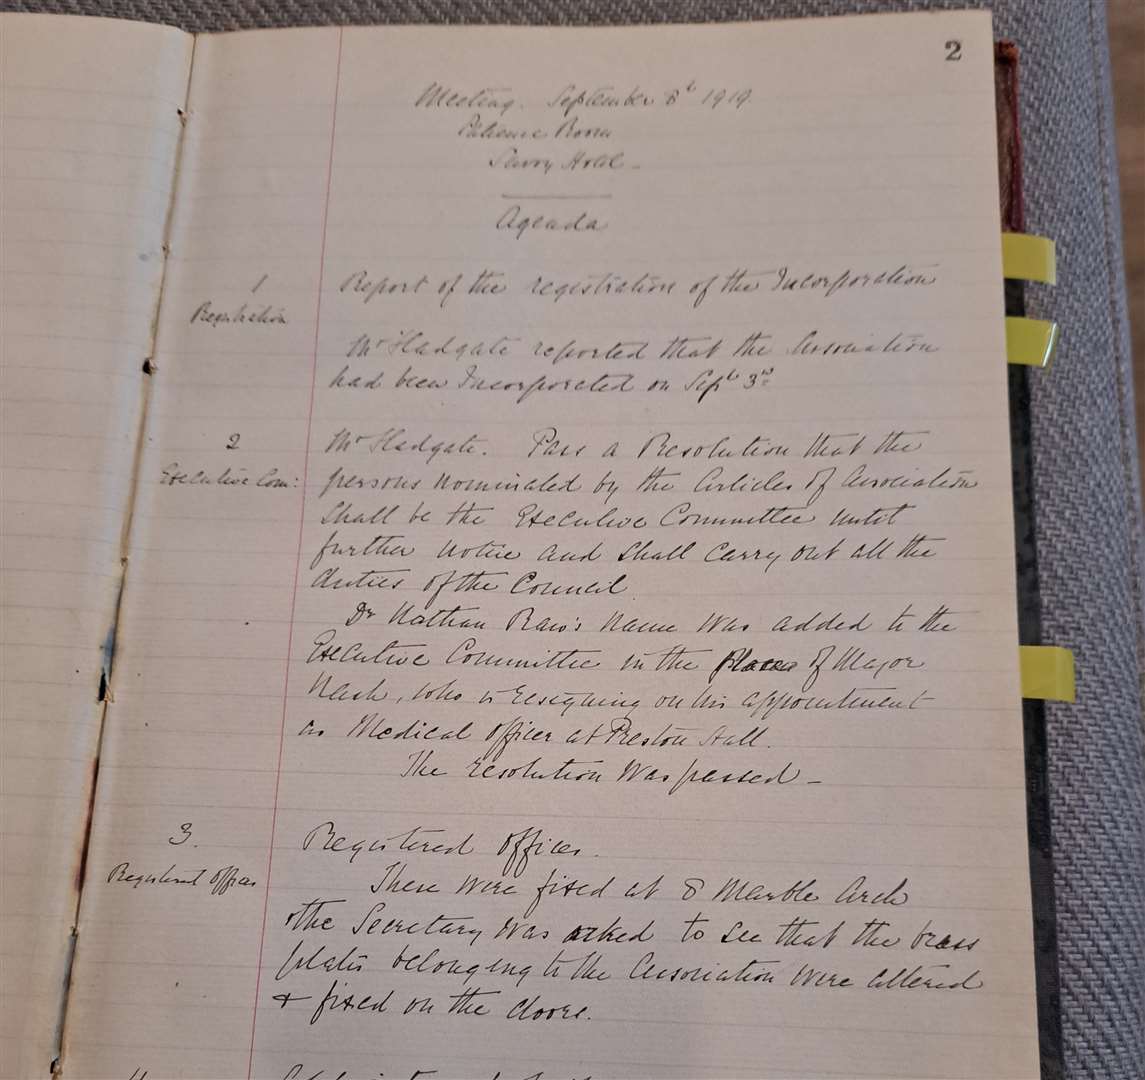 2
Meeting. September 8th 1919.
Patience Room
Savoy Hotel –
Agenda
1
Registration
Report of the registration of the Incorporation
Mr Hadgate reported that the Association
had been Incorporated on Sept 3rd
2
Executive Com:
Mr Hadgate. Pass a Resolution that the
persons nominated by the Articles of Association
shall be the Executive Committee until
further notice and shall carry out all the
duties of the Council.
Dr Nathan Raw's name was added to the
Executive Committee in the place of Major
Nash, who is resigning on his appointment
as Medical Officer at Preston Hall.
The resolution was passed –
3.
Registered Offices
Registered Offices.
These were fixed at 8 Marble Arch
& the Secretary was asked to see that the brass
plates belonging to the Association were altered
& fixed on the doors.